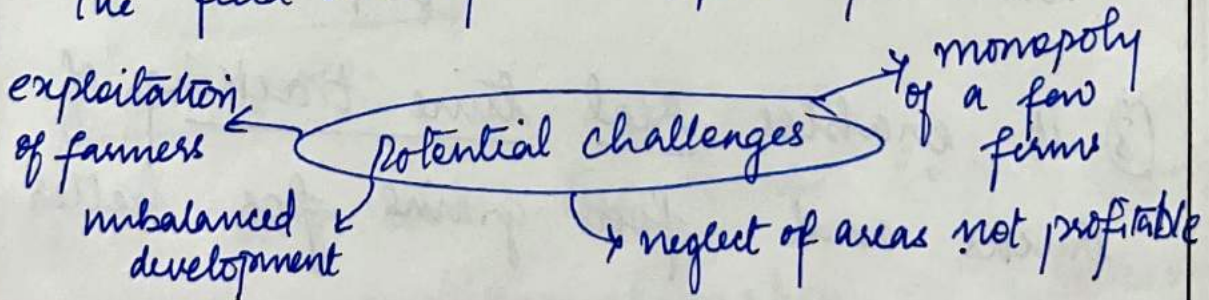 The
exploitation
of farmers
potential challenges
monopoly
of a few
firms
unbalanced
development
neglect of areas not profitable